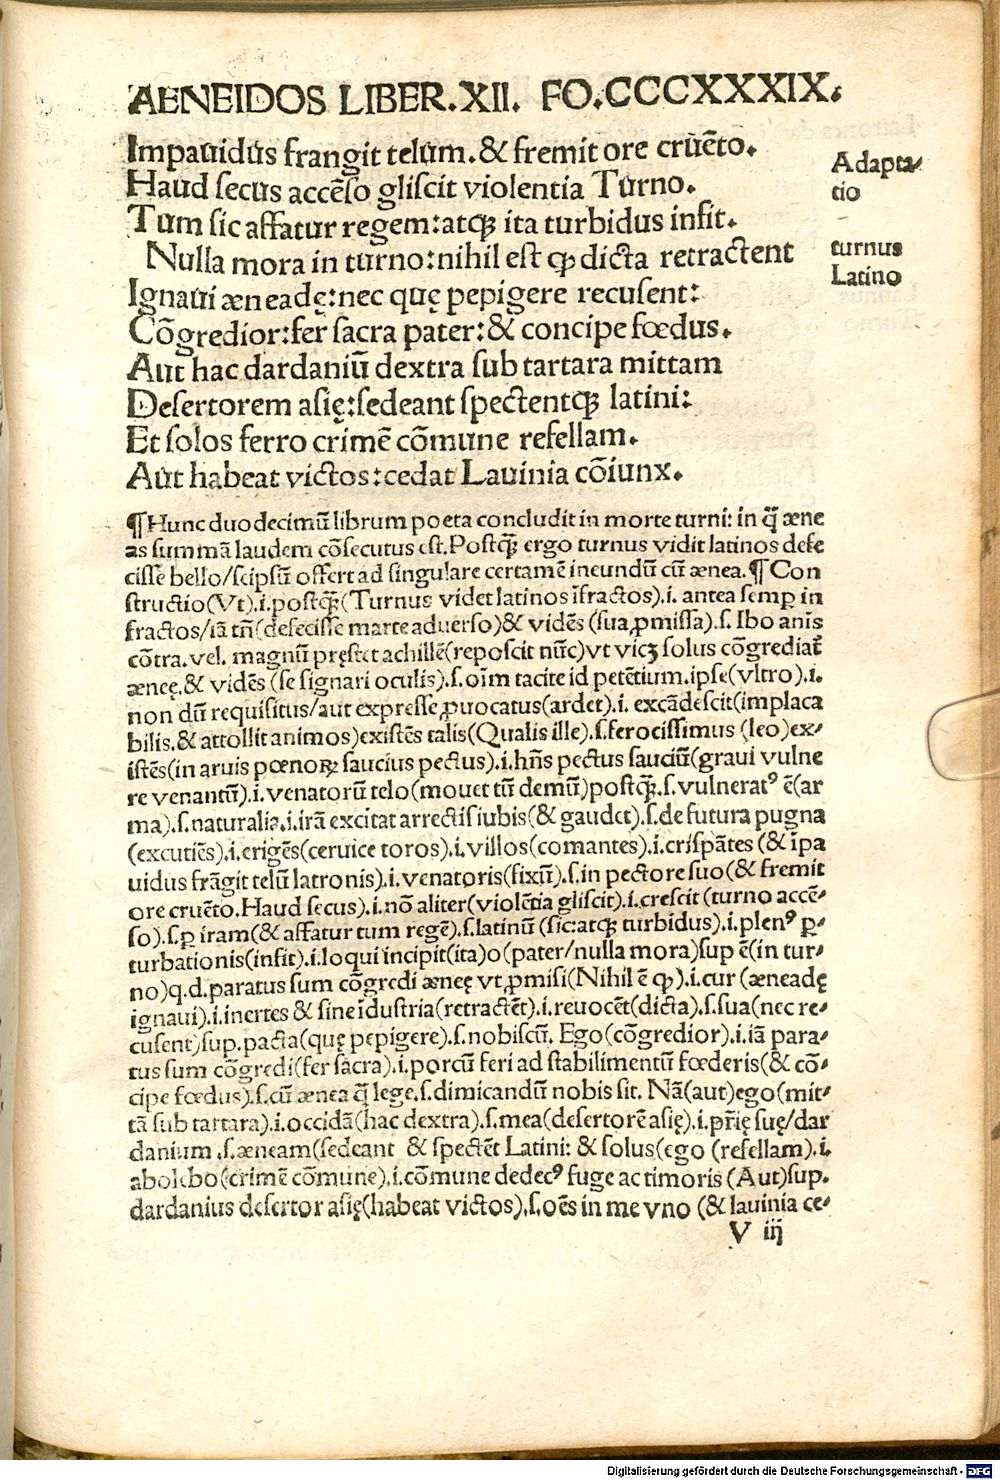 AENEIDOS LIBER.XII. FO.CCCXXXIX.
Impauidus frangit telum.& fremit ore cruẽto.
Haud secus accẽso gliscit violentia Turno.
Tum sic affatur regem:atqꝫ ita turbidus infit.
Nulla mora in turno:nihil est ꝙ dicta retractent
Ignaui æneadę:nec quę pepigere recusent:
Cõgredior:fer sacra pater:& concipe fœdus.
Aut hac dardaniũ dextra sub tartara mittam
Desertorem asię:sedeant spectentqꝫ latini:
Et solos ferro crimẽ cõmune refellam.
Aut habeat victos:cedat Lauinia cõiunx.
Adapta-
tio
turnus
Latino
¶Hunc duodecimũ librum poeta concludit in morte turni: in q̃ æne
as summã laudem cõsecutus est.Postqꝫ̃ ergo turnus vidit latinos defe
cisse bello/seipsũ offert ad singulare certamẽ ineundũ cũ ænea.¶Con
structio(Vt).i.postqꝫ̃(Turnus videt latinos ĩfractos).i. antea semꝑ in
fractos/iã tñ(defecisse marte aduerso)& vidẽs (sua ꝓmissa).s. Ibo anĩs
cõtra.vel. magnũ pręstet achillẽ(reposcit nũc)vt vicꝫ solus cõgrediat̃
ænęę.& vidẽs (se signari oculis).s.oĩm tacite id petẽtium.ipse(vltro).i.
non dũ requisitus/aut expresse ꝓuocatus(ardet).i. excãdescit(implaca
bilis.& attollit animos)existẽs talis(Qualis ille).s.ferocissimus (leo)ex-
istẽs(in aruis pœnoꝝ saucius pectus).i.hñs pectus sauciũ(graui vulne
re venantũ).i.venatorũ telo(mouet tũ demũ)postqꝫ̃.s.vulneratꝰ ẽ(ar
ma).s.naturalia.i.irã excitat arrectis iubis(& gaudet).s.de futura pugna
(excutiẽs).i.erigẽs(ceruice toros).i.villos(comantes).i.crispãtes (& ĩpa
uidus frãgit telũ latronis).i.venatoris(fixũ).s.in pectore suo(& fremit
ore cruẽto.Haud secus).i.nõ aliter(violẽtia gliscit).i.crescit (turno accẽ-
so).s.ꝑ iram(& affatur tum regẽ).s.latinũ (sic:atqꝫ turbidus).i.plenꝰ ꝑ-
turbationis(infit).i.loqui incipit(ita)o(pater/nulla mora)sup ẽ(in tur-
no)q.d.paratus sum cõgredi ænęę vt ꝓmisi(Nihil ẽ ꝙ).i.cur (æneadę
ignaui).i.inertes & sine ĩdustria(retractẽt).i.reuocẽt(dicta).s.sua(nec re-
cusent)sup.pacta(quę pepigere).s.nobiscũ. Ego(cõgredior).i.iã para-
tus sum cõgredi(fer sacra).i.porcũ feri ad stabilimentũ fœderis(& cõ-
cipe fœdus).s.cũ ænea q̃ lege.s.dimicandũ nobis sit. Nã(aut)ego(mit-
tã sub tartara).i.occidã(hac dextra).s.mea(desertorẽ asię).i.pr̃ię suę/dar
danium .s.æneam(sedeant & spectẽt Latini: & solus(ego (refellam).i.
abolebo(crimẽ cõmune).i.cõmune dedecꝰ fugę ac timoris (Aut)sup.
dardanius desertor asię(habeat victos).s.oẽs in me vno (& lauinia ce-
V iij
Digitalisierung gefördert durch die Deutsche Forschungsgemeinschaft - DFG